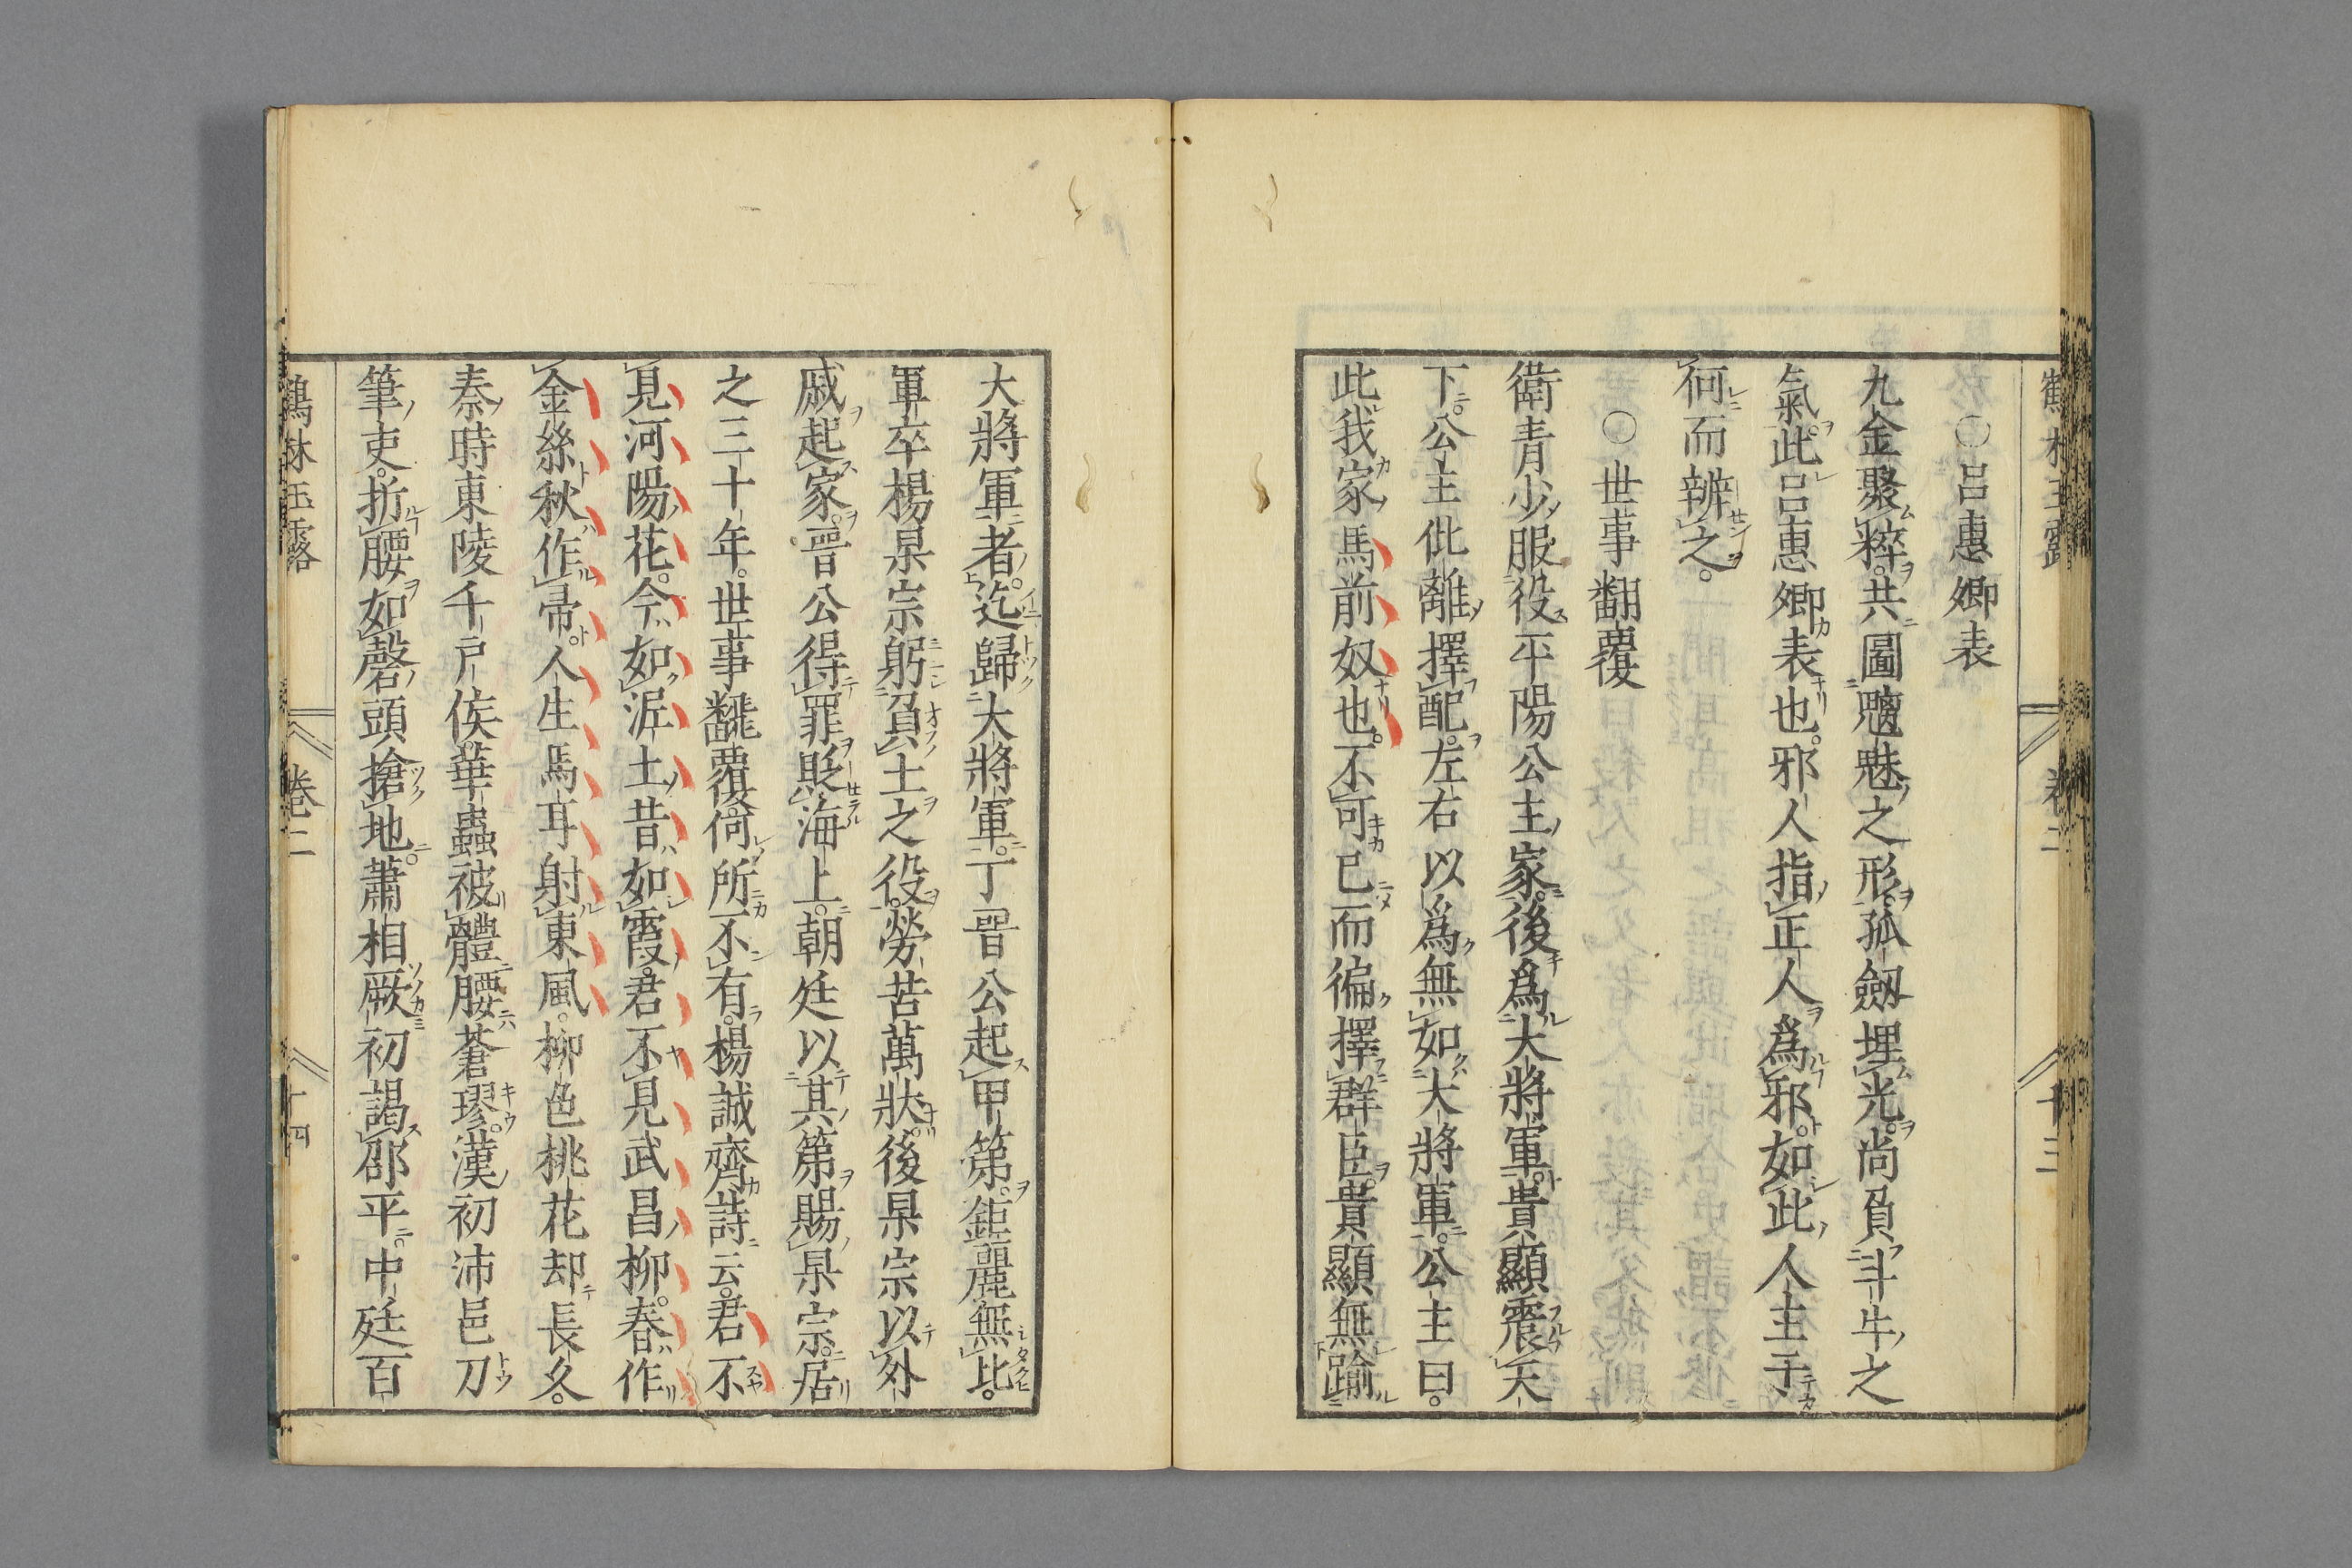 鶴林玉露 卷二 十三
○呂惠卿表
九金聚粹。共圖魑魅之形。孤劔埋光。尚負斗牛之
氣。此呂惠卿表也。邪人指正人爲邪。如此人主于
何而辨之。
○世事翻覆
衛青少服役平陽公主家。後爲大將軍。貴顯震天
下。公主仳離擇配。左右以爲無如大將軍。公主曰。
此我家馬前奴也。不可已而徧擇群臣。貴顯無踰
大將軍者。迄歸大將軍。丁晉公起甲第。鉅麗無比。
軍卒楊杲宗躬負土之役。勞苦萬狀。後杲宗以外
戚起家。晉公得罪貶海上。朝廷以其第賜杲宗。居
之三十年。世事飜覆何所不有。楊誠齊詩云。君不
見河陽花。今如泥土昔如霞。君不見武昌柳。春作
金絲秋作帚。人生馬耳射東風。柳色桃花却長久。
秦時東陵千戶侯。華蟲被體腰蒼璆。漢初沛邑刀
筆吏。折腰如磬頭搶地。蕭相厥初謁邵平。中廷百
鶴林玉露 卷二 十四